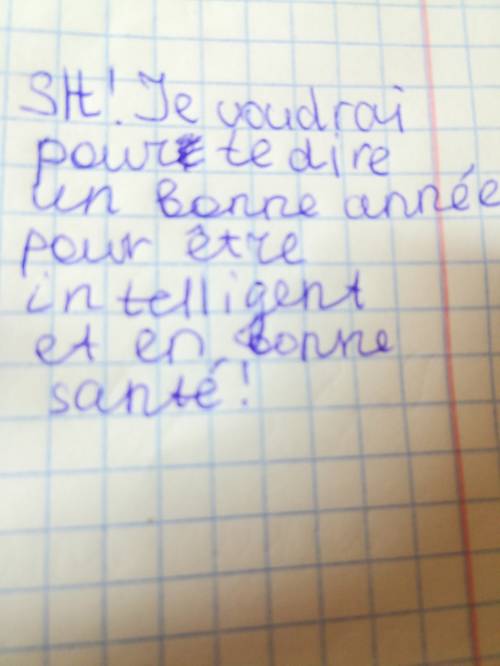 SH! Je voudrai
pour te dire
un bonne année
pour être
intelligent
et en bonne
santé!